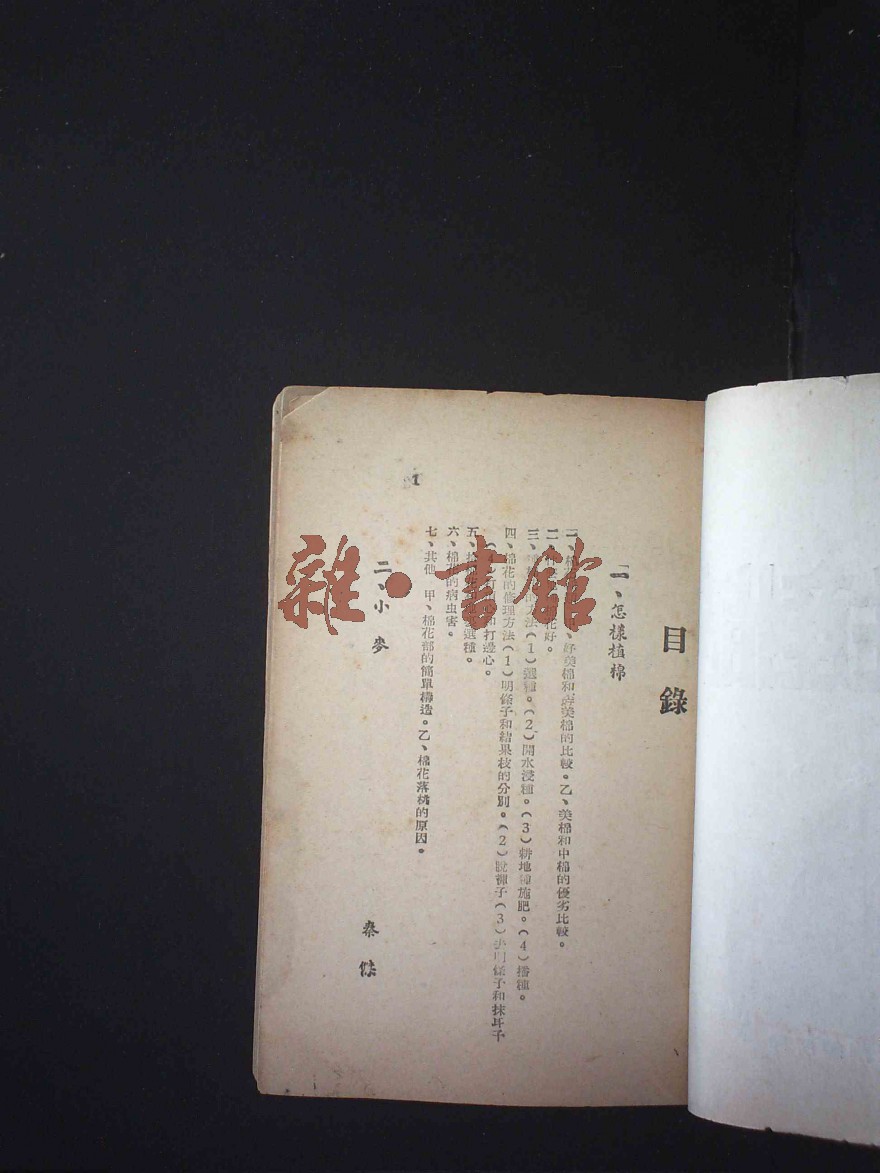 目錄
一、怎樣植棉
一、好美棉和劣美棉的比較。乙、美棉和中棉的優劣比較。
二、花好。
三、方法（1）選種。（2）開水浸種。（3）耕地和施肥。（4）播種。
四、棉花的修理方法（1）明條子和結果枝的分別。（2）脫褲子（3）去明條子和抹耳子
打邊心。
五、選種。
六、棉花的病虫害。
七、其他 甲、棉花部的簡單構造。乙、棉花落桃的原因。
二、小麥 秦傑
1
雜·書館